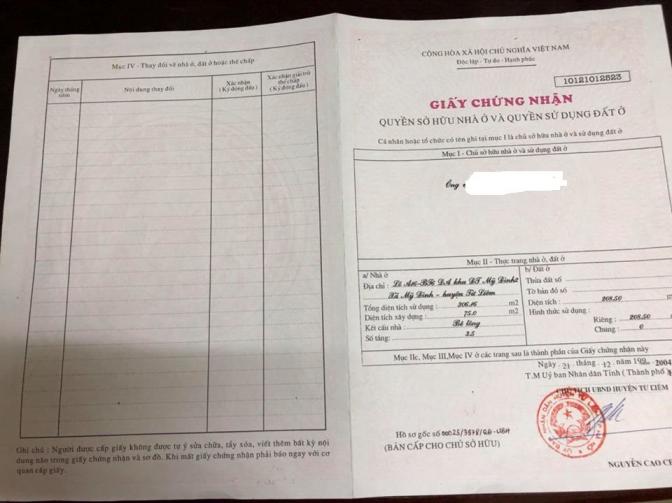 Mục IV - Thay đổi về nhà ở, đất ở hoặc thế chấp
Ngày tháng năm
Nội dung thay đổi
Xác nhận (Ký đóng dấu)
Xác nhận giải trừ thế chấp (Ký đóng dấu)
Ghi chú : Người được cấp giấy không được tự ý sửa chữa, tẩy xóa, viết thêm bất kỳ nội
dung nào trong giấy chứng nhận và sơ đồ. Khi mất giấy chứng nhận phải báo ngay với cơ
quan cấp giấy.
CỘNG HÒA XÃ HỘI CHỦ NGHĨA VIỆT NAM
Độc lập - Tự do - Hạnh phúc
10121012523
GIẤY CHỨNG NHẬN
QUYỀN SỞ HỮU NHÀ Ở VÀ QUYỀN SỬ DỤNG ĐẤT Ở
Cá nhân hoặc tổ chức có tên ghi tại mục I là chủ sở hữu nhà ở và sử dụng đất ở
Mục I - Chủ sở hữu nhà ở và sử dụng đất ở
Ông
Mục II - Thực trạng nhà ở, đất ở
a/ Nhà ở
Địa chỉ : Lô DA khu ĐT Mỹ Đình2
Xã Mỹ Đình - huyện Từ Liêm
Tổng diện tích sử dụng : m2
Diện tích xây dựng : 75.0 m2
Kết cấu nhà : Bê tông
Số tầng: 3.5
b/ Đất ở
Thửa đất số :
Tờ bản đồ số :
Diện tích : 208.50
Hình thức sử dụng :
Riêng : 208.50
Chung : 0
Mục IIc, Mục III, Mục IV ở các trang sau là thành phần của Giấy chứng nhận này
Ngày 21 tháng 12 năm 2004
T.M Uỷ ban Nhân dân Tỉnh ( Thành phố
CHỦ TỊCH UBND HUYỆN TỪ LIÊM
Hồ sơ gốc số
(BẢN CẤP CHO CHỦ SỞ HỮU)
NGUYỄN CAO